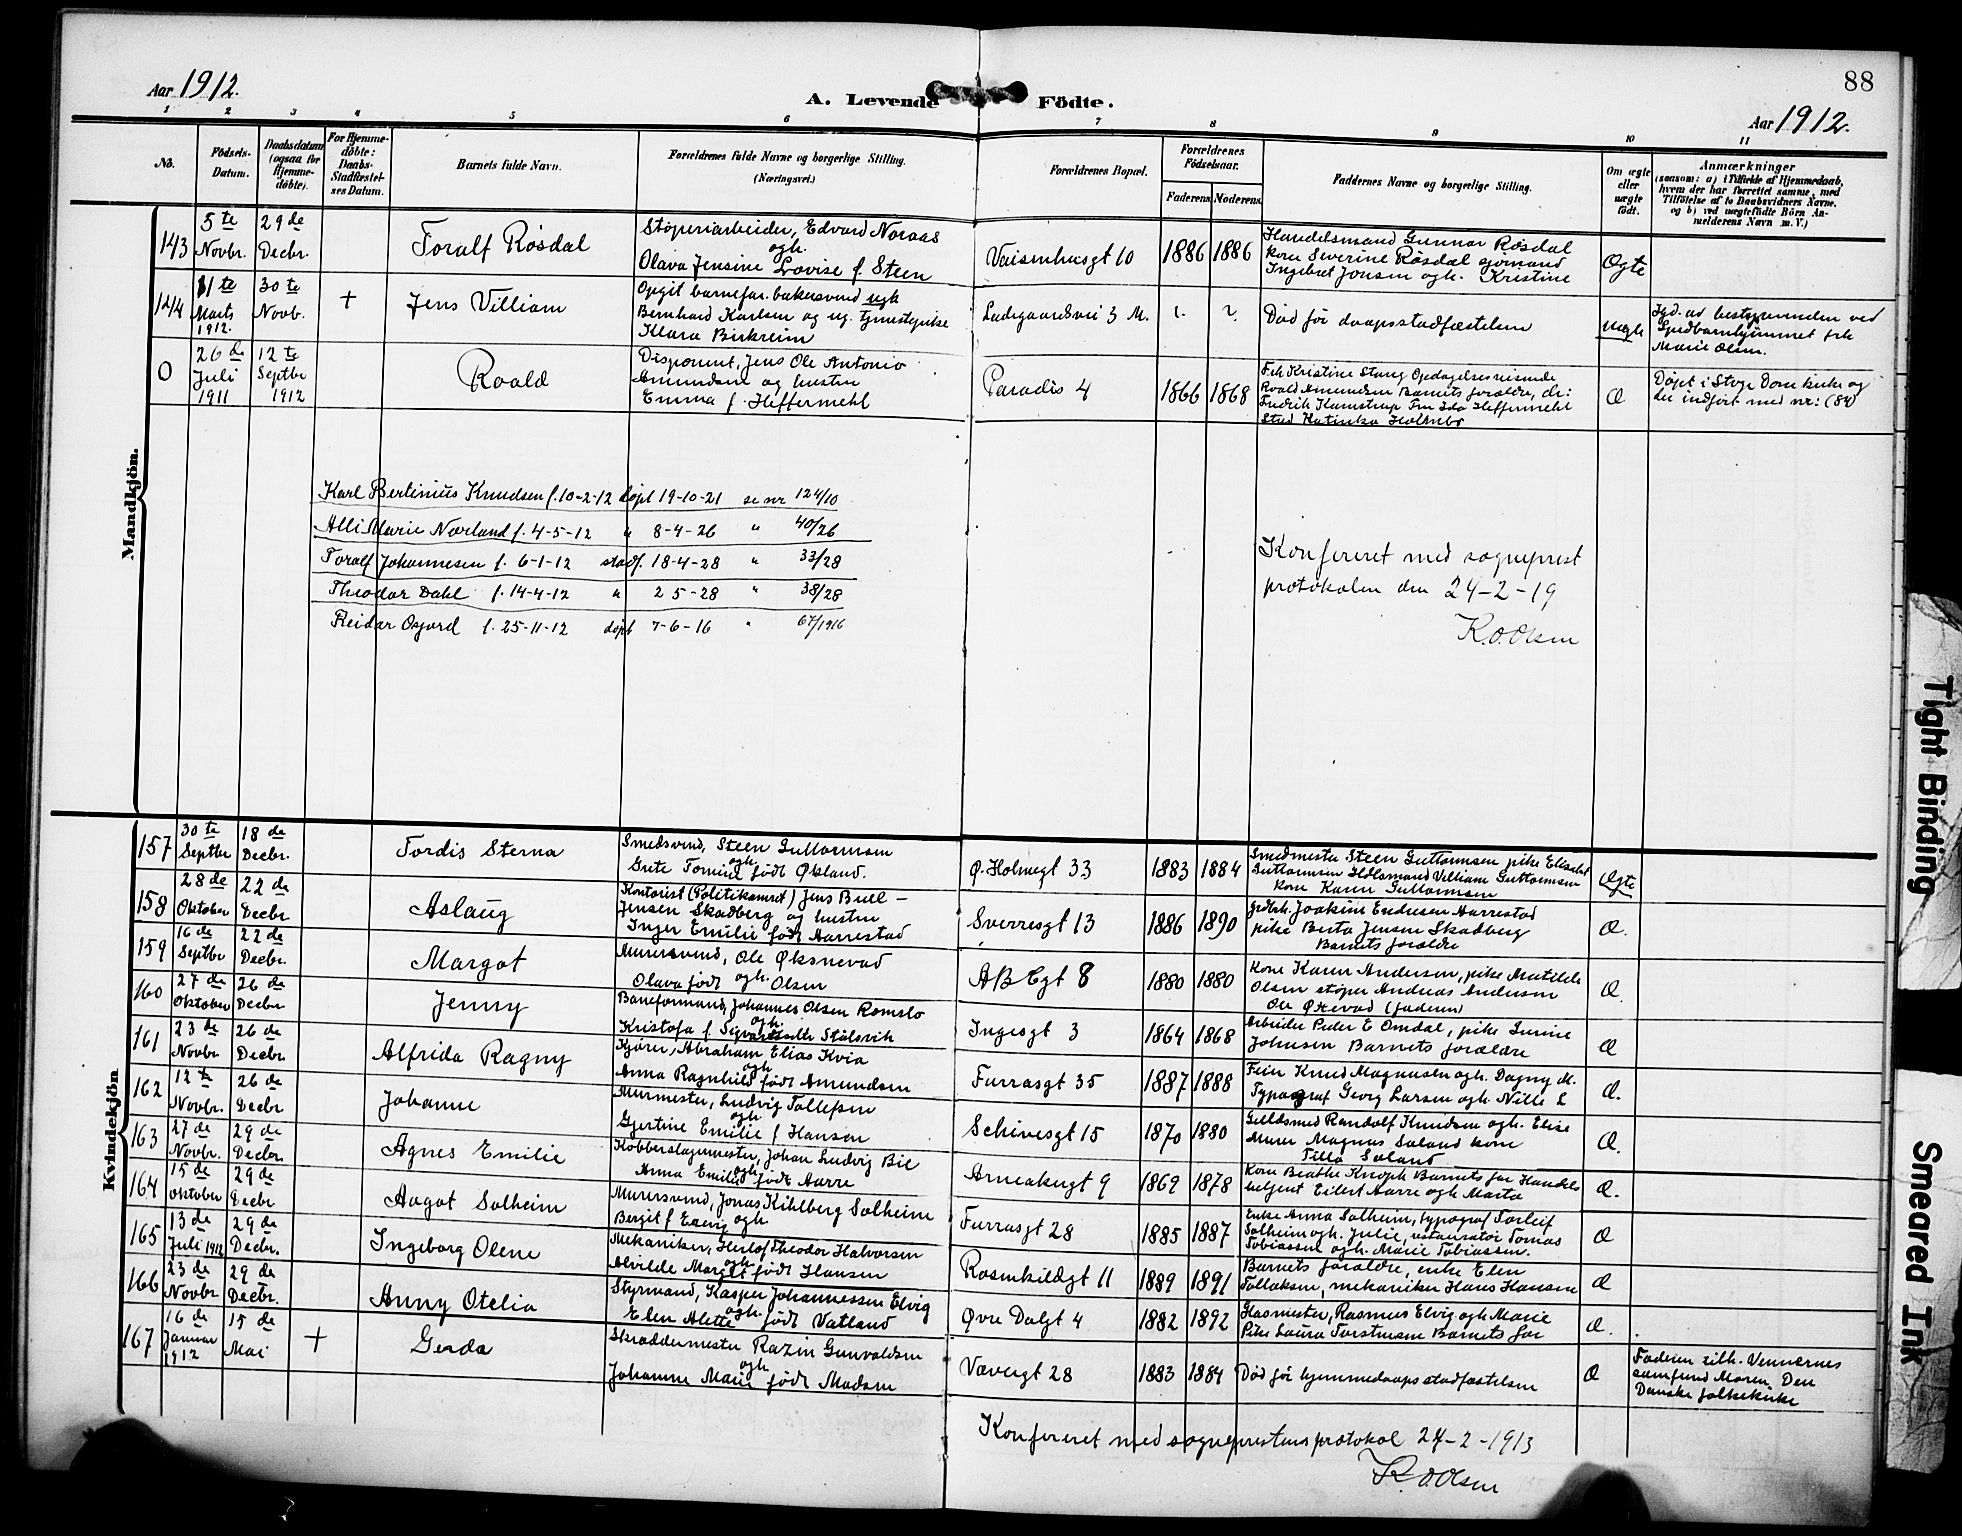 88
Aar 1912.
A. Levende Födte.
Aar 1912.
1 2 3 4 5 6 7 8 9 10 11
No.
Födsels-Datum.
Daabsdatum (ogsaa for Hjemme-döbte).
For Hjemme-döbte: Daabs-Stadfæstel-ses Datum.
Barnets fulde Navn.
Forældrenes fulde Navne og borgerlige Stilling. (Næringsvei.)
Forældrenes Bopæl.
Forældrenes Födselsaar.
Faderens Moderens
Faddernes Navne og borgerlige Stilling.
Om ægte eller uægte födt.
Anmærkninger
(saasom: a) i Tilfælde af Hjemmedaab, hvem der har forrettet samme, med Tilföielse af to Daabsvidners Navne. og b) ved uægtefödte Börn An-melderens Navn m. V.)
Mandkjön.
143 5te Novbr. 29de Decbr. Toralf Røsdal
Støperiarbeider, Edvard Noraas
ogh.
Olava Jensine Lovise f. Steen
Vaisenhusgt 10 1886 1886
Handelsmand Gunnar Røsdal
kone Severine Røsdal sjömand
Ingebret Jonsen ogh. Kristine
Ægte
144 11te Marts 1912. 30te Novb. + Jens Villiam
Opgit barnefar. bakersvend ugk
Bernhard Karlsen og ug. tjenestepike
Klara Birkreim
Ladegaardsvei 3 M. ? ?
Död før daapsstadfæstelsen
uægte
Igd. av bestyrerinden ved
Spedbarnhjemmet frk
Marie Olsen.
0 26de Juli 1911 12te Septbr 1912 Roald
Disponent, Jens Ole Antonio
Amundsen og hustru
Emma f. Heffermehl
Paradis 4 1866 1868
Frk Kristine Stang Opdagelsesreisende
Roald Amundsen Barnets forældre, dr:
Fredrik Kamstrup Fru Ida Heffermehl
Stud Katinka Holmbo
Æ
Døpt i Stvgr Domkirke og
der indført med nr: (84)
Karl Bertinius Knudsen f. 10-2-12 døpt 19-10-21 se nr 124/10
Alli Marie Norland f. 4-5-12 " 8-4-26 " 40/26
Toralf Johannesen f. 6-1-12 stadf. 18-4-28 " 33/28
Theodor Dahl f. 14-4-12 " 2 5-28 " 38/28
Reidar Osjord f. 25-11-12 døpt 7-6-16 " 67/1916
Konfereret med sogneprest
protokolen den 24-2-19
K.O.Olsen
Kvindekjön
157 30te Septbr 18de Decbr. Tordis Sterna
Smedsvend, Steen Guttormsen
ogh
Grete Tomine født Øksland.
Ø. Holmegt 33 1883 1884
Smedmester Steen Guttormsen pike Elisabet
Guttormsen Villiam Guttormsen
kone Karen Guttormsen
Ægte
158 28de Oktober 22de Decbr Aslaug
Kontorist (Politikamret) Jens Buel -
Jensen Skadberg og hustru
Inger Emilie født Aarrestad
Sverresgt 13 1886 1890
Joakim Endresen Aarrestad
pike Berta Jensen Skadberg
Barnets forældre
Æ.
159 16de Septbr 22de Decbr. Margot
Murersvend, Ole Øksnevad
ogh.
Olava født Olsen
ABCgt 8 1880 1880
Kone Karen Andersen, pike Matilde
Olsen støper Andreas Andersen
Ole (faderen)
Æ.
160 27de Oktober 26de Decbr Jenny
Baneformand, Johannes Olsen Romslo
ogh.
Kristofa f. Stølsvik
Ingesgt 3 1864 1868
Arbeider Peder E Omdal, pike
Johnsen Barnets forældre
Æ
161 23de Novbr 26de Decbr Alfrida Ragny
Kjører, Abraham Elias Kvia
ogh
Anna Ragnhild født Amundsen
Furrasgt 35 1887 1888
Feier Knud Magnussen ogh. Dagny M.
Typograf Georg Larsen ogh Nille L
Æ.
162 12te Novbr. 26de Decbr Johanne
Murmester, Ludvig Tollefsen
ogh
Gjertine Emilie f Hansen
Schivesgt 15 1870 1880
Guldsmed Randolf Knudsen ogh. Elise
Murer Magnus Søland kone
Tilla Søland
Æ.
163 27de Novbr. 29de Decbr Agnes Emilie
Kobberslagermester, Johan Ludvig Bie
ogh
Anna Emilie født Aarre
Arneakregt 9 1869 1878
Kone Beathe Knoph Barnets far Handels
betjent Eilert Aarre ogh Marta
Æ.
164 15de Oktober 29de Decbr Aagot Solheim
Murersvend, Jonas Kihlberg Solheim
Bergit f. ogh
Furrasgt 28 1885 1887
Enke Anna Solheim, typograf Torleif
Solheim ogh. Julie, restauratør Tomas
Tobiassen ogh. Marie Tobiassen.
Æ
165 13de Juli 1912 29de Decbr. Ingeborg Olene
Mekaniker, Herlof Theodor Halvorsen
ogh
Alvilde Margit født Hansen
Rosenkildegt 11 1889 1891
Barnets forældre, enke Elen
Tollaksen, mekaniker Hans Hansen
Æ
166 23de Novbr 29de Decbr. Anny Otelia
Styrmand, Kasper Johannessen Elvig
ogh.
Elen Alette født Vatland
Øvre Dalgt 4 1882 1892
Glasmester, Rasmus Elvig ogh Marie
Pike Laura Torstensen Barnets far
Æ.
167 16de Januar 1912 15de Mai + Gerda
Skræddermester Razin Gunvaldsen
ogh
Johanne Marie født Madsen
Vævergt 28 1883 1884
Död før hjemmedaaps stadfæstelsen
Æ
Faderen tilh. Vennernes
samfund Moren, Den
Danske folkekirke
Konfereret med sogneprestens protokol 24-2-1913
K.O.Olsen
Tight Binding
Smeared Ink